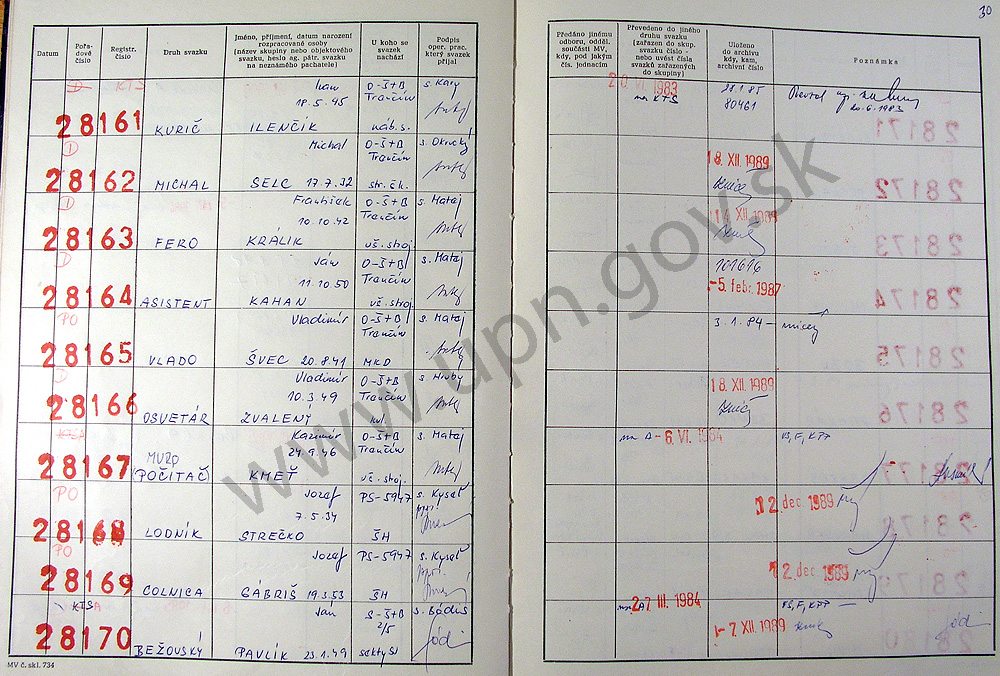 30
Datum
Pořadové číslo
Registr. číslo
Druh svazku
Jméno, příjmení, datum narození rozpracované osoby (název skupiny nebo objektového svazku, heslo ag. pátr. svazku na neznámého pachatele)
U koho se svazek nachází
Podpis oper. prac. který svazek přijal
Předáno jinému odboru, odděl. součásti MV, kdy, pod jakým čís. jednacím
Převedeno do jiného druhu svazku (zařazen do skup. svazku číslo - nebo uvést čísla svazků zařazených do skupiny)
Uloženo do archivu kdy, kam, archivní číslo
Poznámka
KTS Ivan O-Š+B s. Kary 20. VI 1983 28.1.85
18.5.45 Trenčín na KTS 80461
28161 KURIČ ILENČÍK náb.s. 20.6.1983
I Michal O-Š+B s. Okrucký
Trenčín 18. XII. 1989
28162 MICHAL ŠELC 17.7.32 str.čk.
I František O-Š+B s. Mataj
10.10.42 Trenčín 14. XII 1989
28163 FERO KRÁLIK vš.stroj.
D Ján O-Š+B s. Mataj 101616
11.10.50 Trenčín -5. febr. 1987
28164 ASISTENT KAHAN vš.stroj.
PO Vladimír O-Š+B s. Mataj 3.1.84 -
Trenčín
28165 VLADO ŠVEC 20.8.41 MKD
I Vladimír O-Š+B s. Hruby 18. XII. 1989
10.3.49 Trenčín
28166 OSVETÁR ZVALENÝ kul.
KTSA Kazimír O-Š+B s. Mataj na A -6. VI. 1984 B, F, KPP
MUZO 24.9.46 Trenčín
28167 (POČÍTAČ) KMEŤ vš.stroj.
PO Jozef PS-5947 s. Kysel 12. dec. 1989
7.5.34 ppr.
28168 LODNÍK STREČKO ŠH
PO Jozef PS-5947 s. Kysel 12. dec. 1989
ppr.
28169 COLNICA GÁBRIŠ 19.3.53 ŠH
KTSA Ján S-Š+B s. Bódiš na A 27 III. 1984 FŠ, F, KPP -
2/5 1-7 XII. 1989
28170 BEŽOVSKÝ PAVLÍK 23.1.49 sekty SJ
MV č. skl. 734
www.upn.gov.sk